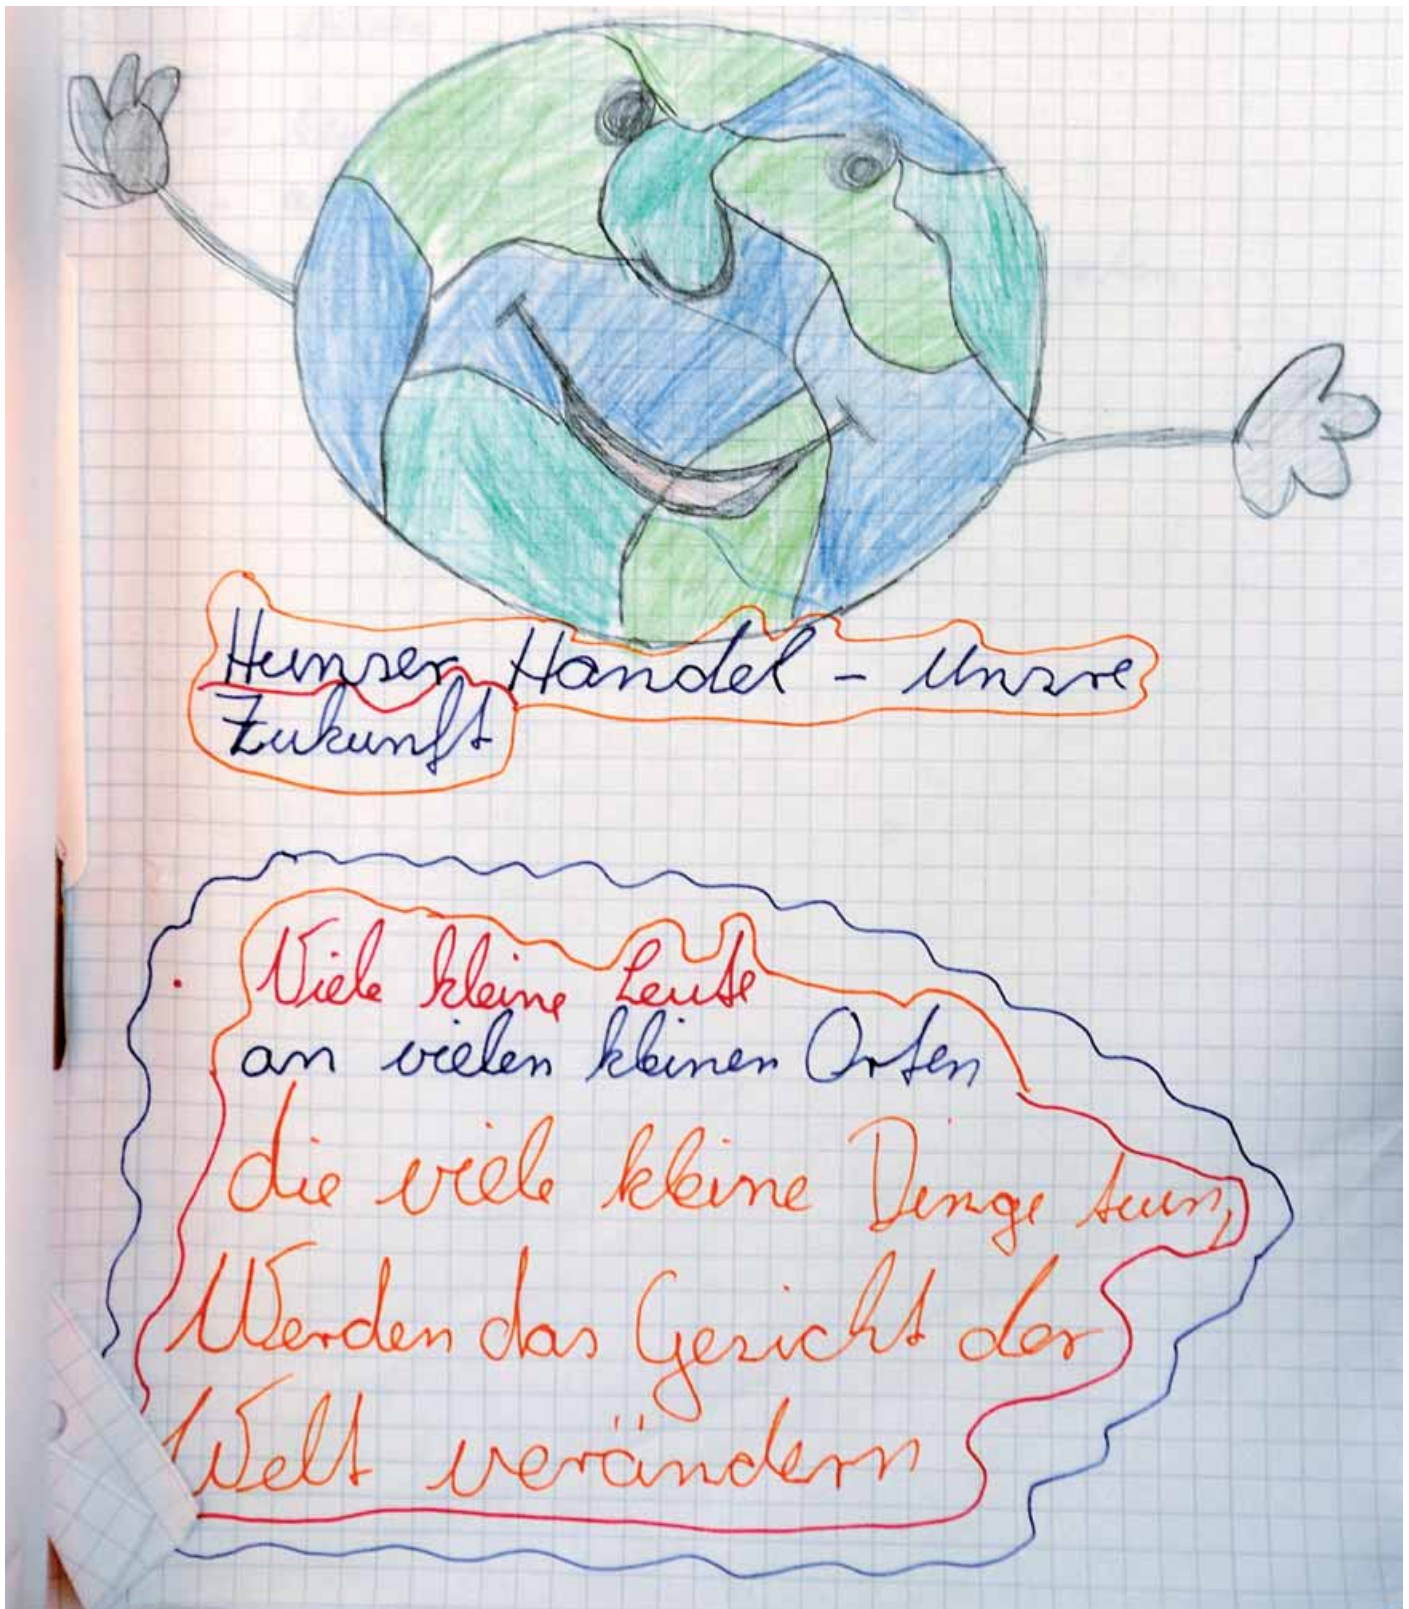 Hunser Handel - Unsre
Zukunft
Viele kleine Leute
an vielen kleinen Orten
die viele kleine Dinge tun,
Werden das Gesicht der
Welt verändern